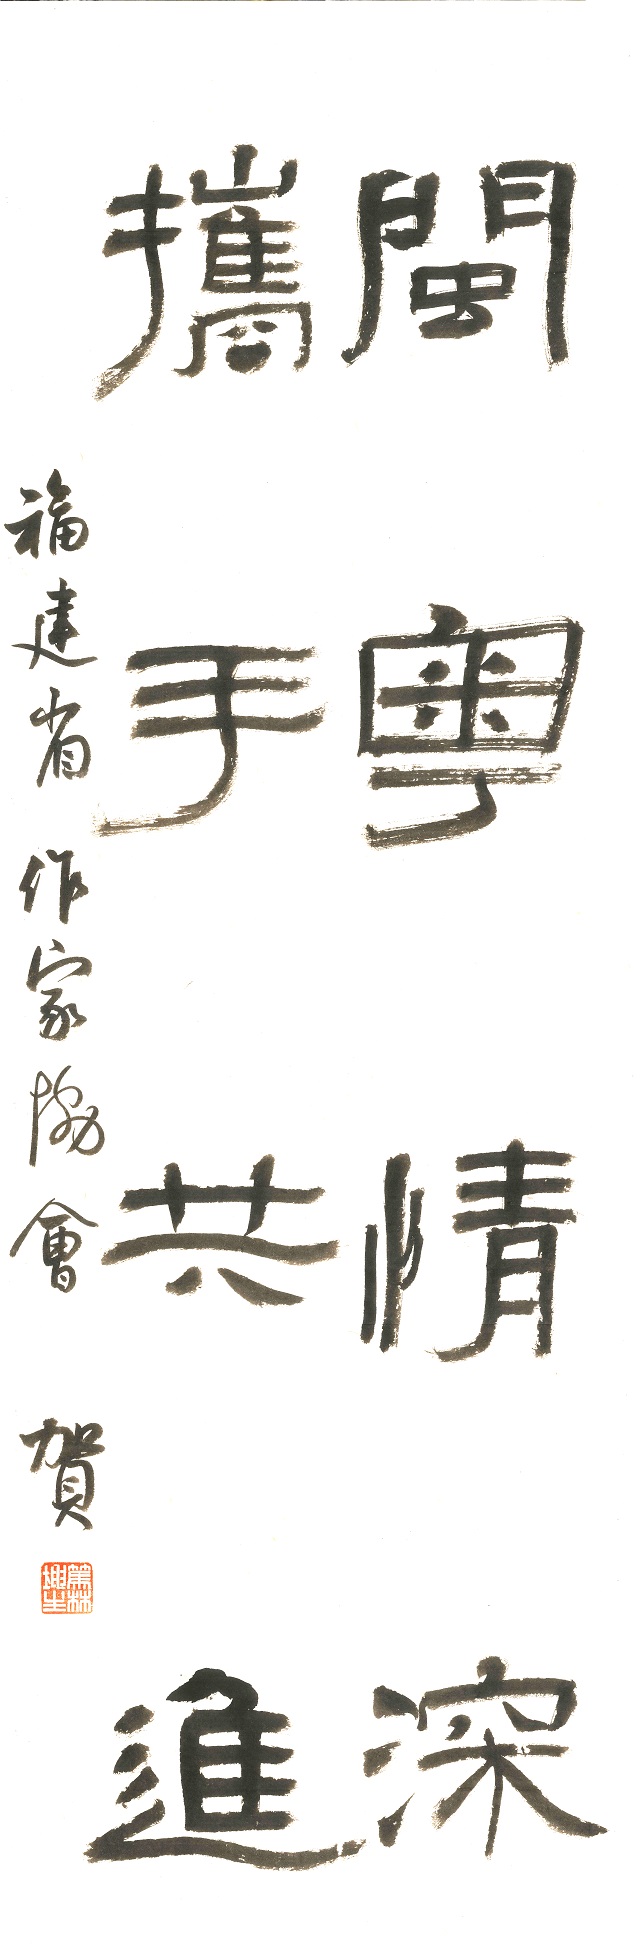 閩粵情深
攜手共進
福建省作家協會賀